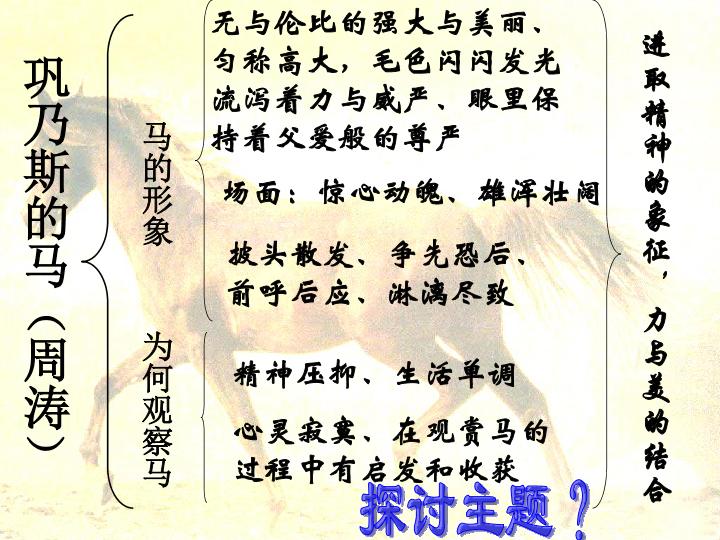 巩乃斯的马（周涛）
马的形象
无与伦比的强大与美丽、
匀称高大，毛色闪闪发光
流泻着力与威严、眼里保
持着父爱般的尊严
场面：惊心动魄、雄浑壮阔
披头散发、争先恐后、
前呼后应、淋漓尽致
为何观察马
精神压抑、生活单调
心灵寂寞、在观赏马的
过程中有启发和收获
进取精神的象征，力与美的结合
探讨主题？